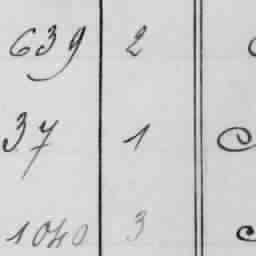 639 2
37 1
1040 3